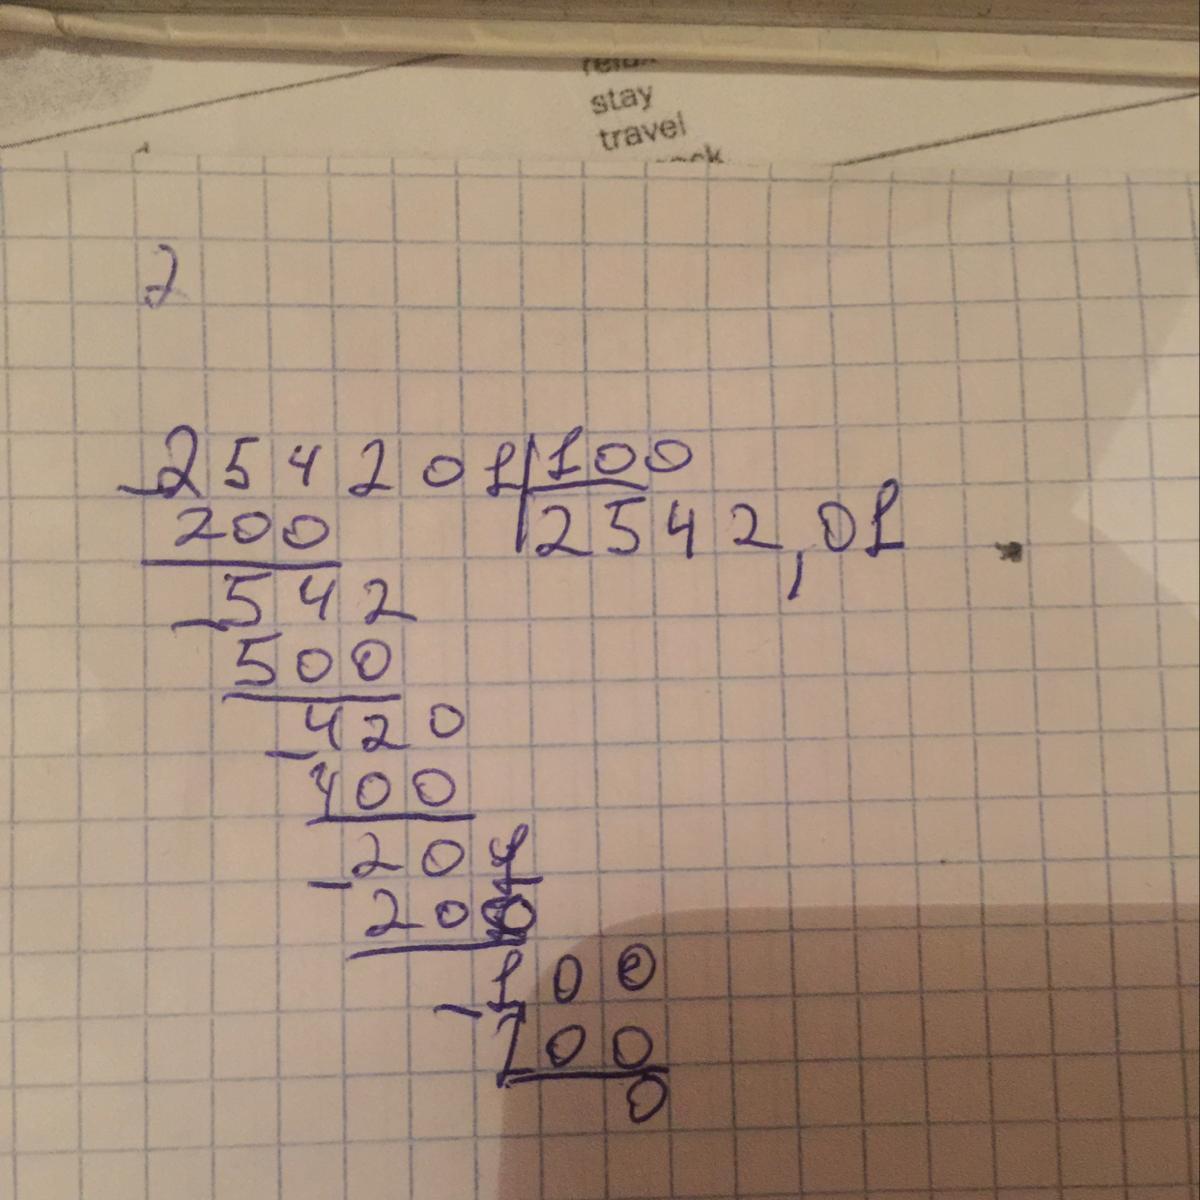 stay
travel
2
254201 100
200 2542,01
542
500
420
400
201
200
100
100
0